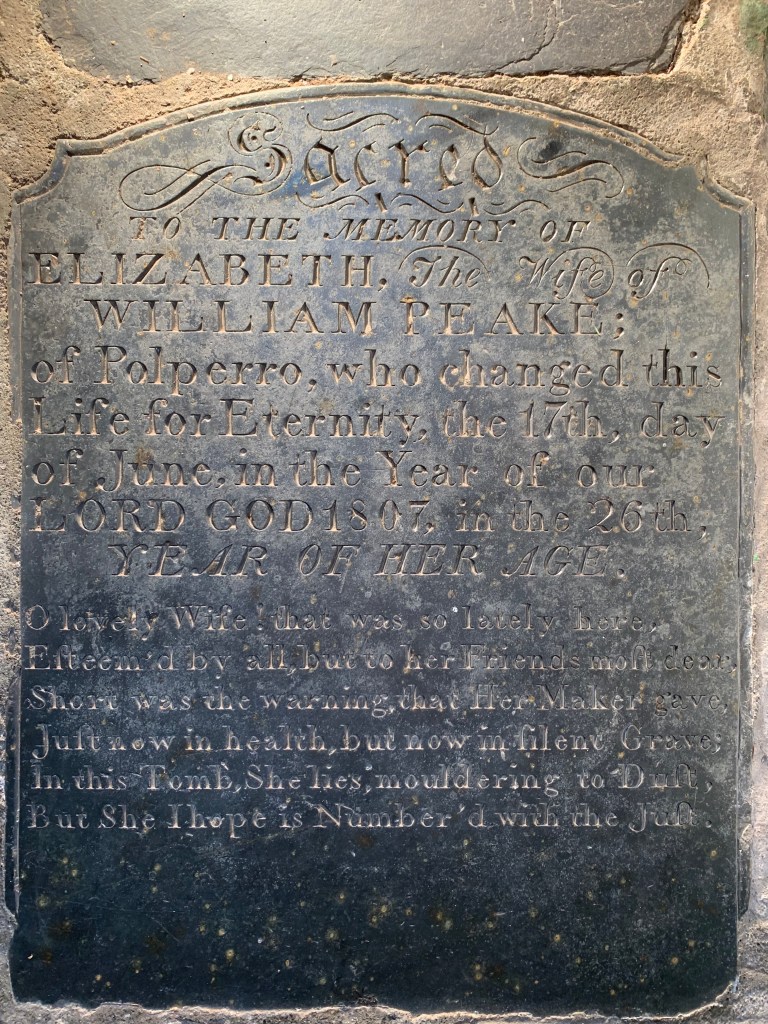 Sacred
TO THE MEMORY OF
ELIZABETH, The Wife of
WILLIAM PEAKE;
of Polperro, who changed this
Life for Eternity, the 17th, day
of June, in the Year of our
LORD GOD 1807, in the 26th,
YEAR OF HER AGE.
O lovely Wife! that was so lately here,
Eſteem'd by all, but to her Friends moſt dear,
Short was the warning, that Her Maker gave,
Juſt now in health, but now in ſilent Grave;
In this Tomb, She lies, mouldering to Duſt,
But She I hope is Number'd with the Juſt.